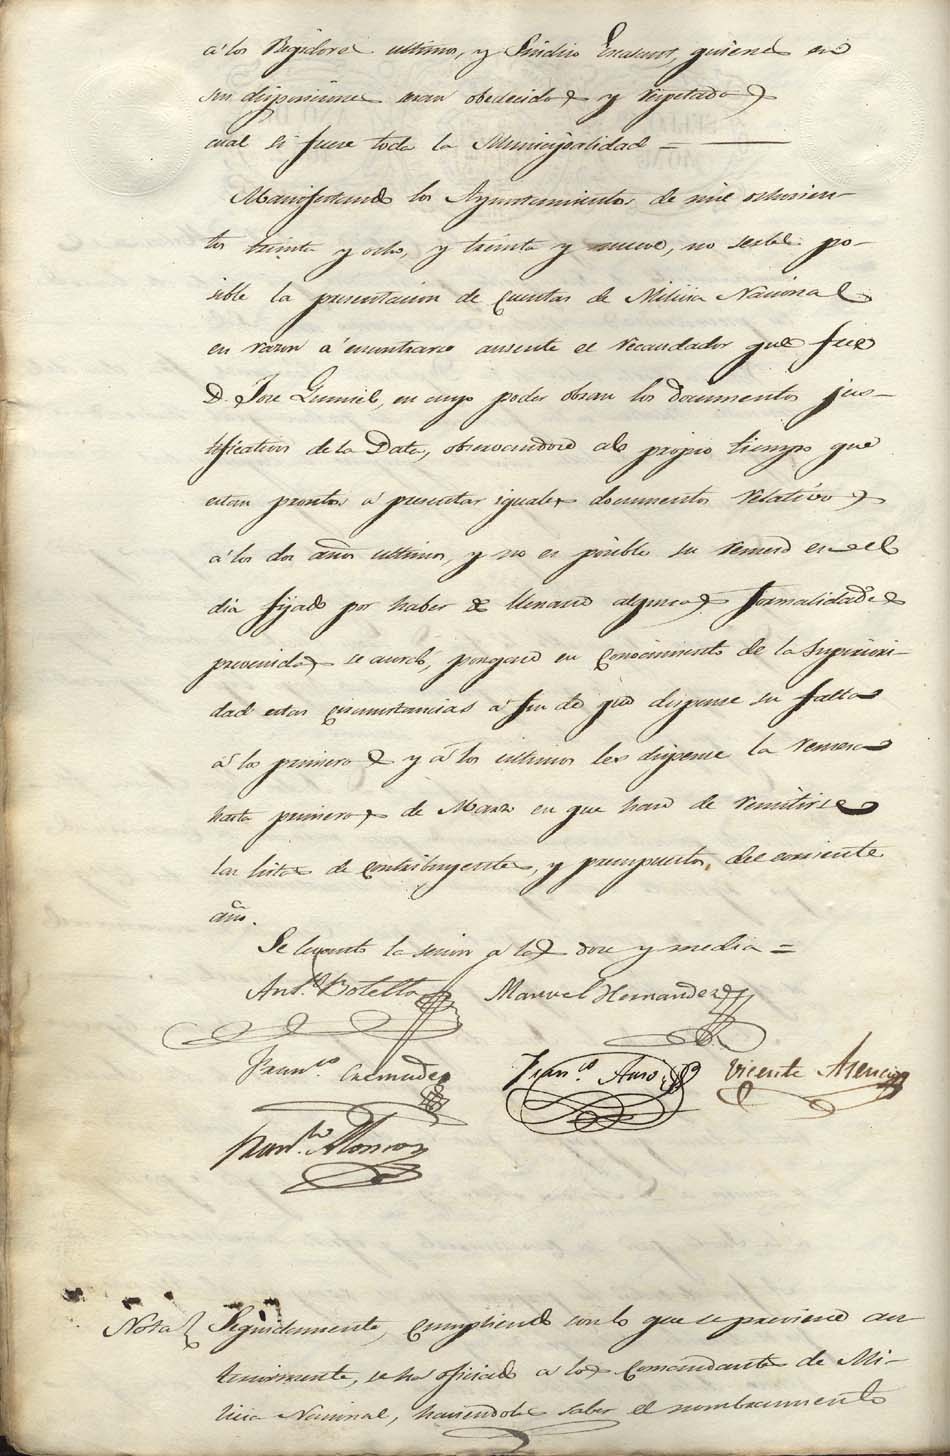 á los Regidores ultimos, y Sindico Escasuos, quienes en
sus disposiciones seran obedecidos y respetados
cual si fuere toda la Municipalidad =
Manifestando los Ayuntamientos de mil ochocien-
tos treinta y ocho, y treinta y nueve, no serles po-
sible la presentacion de cuentas de Milicia Nacional
en razon á encontrarse ausente el recaudador que fue
D. Jose Gumiel, en cuyo poder obran los documentos jus-
tificativos de la Data, observandose al propio tiempo que
estan prontos á presentar iguales documentos relativos
á los dos años ultimos, y no es posible su remesa en el
dia fijado por haber de llenarse algunas formalidades
prevenidas, se acordó, pongase en conocimiento de la Superiori-
dad estas circunstancias á fin de que dispense su falta
á los primeros y á los ultimos les dispense la remesa
hasta primeros de Marzo en que han de remitirse
las listas de contribuyentes, y presupuestos, del corriente
año.
Se levantó la sesion á las doce y media =
Ant.º Botella Manuel Hernandez
Fran.co Fran.co Vicente Asencio
Fran.co
Nota Seguidamente, cumpliendo con lo que se previene an-
teriormente, se ha oficiado á los Comandantes de Mi-
licia Nacional, haciendoles saber el nombramiento